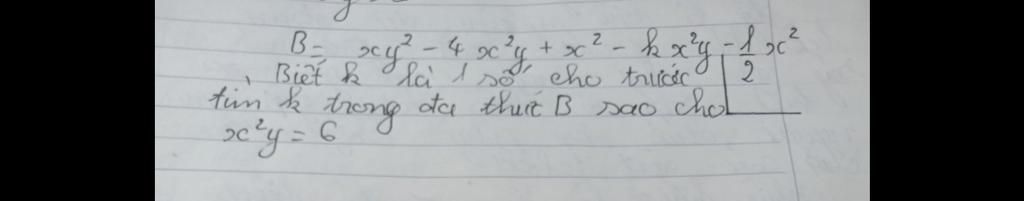 B = xy² - 4x²y + x² - kx²y - 1/2 x²
Biết k là 1 số cho trước
tìm k trong đa thức B sao cho
x²y = 6